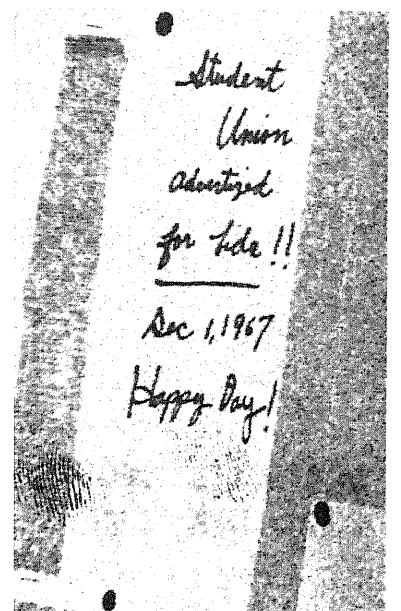 Student
Union
advertized
for bids!!
Dec 1, 1967
Happy Day!